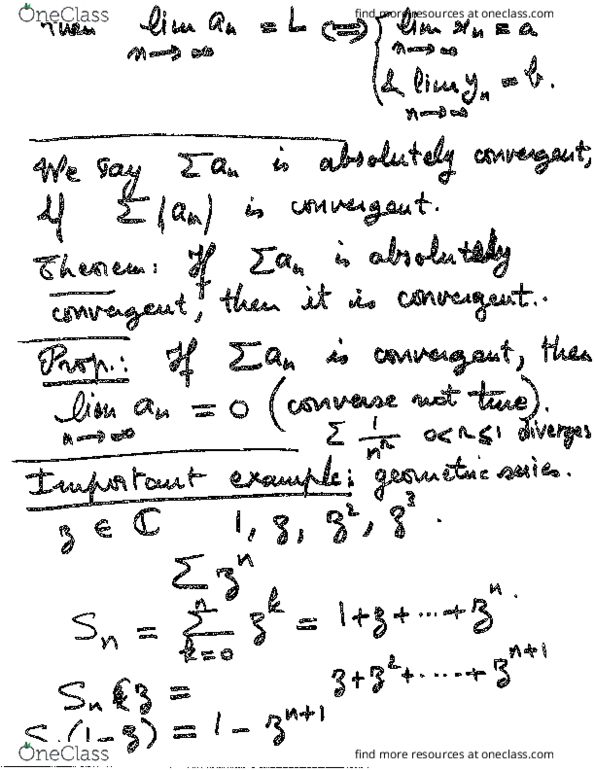 OneClass
find more resources at oneclass.com
Then lim aₙ = L ⟺ { lim xₙ = a
n→∞ n→∞
& lim yₙ = b.
n→∞
We say Σaₙ is absolutely convergent,
if Σ|aₙ| is convergent.
Theorem: If Σaₙ is absolutely
convergent, then it is convergent..
Prop.: If Σaₙ is convergent, then
lim aₙ = 0 (converse not true).
n→∞ Σ 1/nʳ 0<r≤1 diverges
Important example: geometric series.
z ∈ ℂ 1, z, z², z³.
Σ zⁿ
Sₙ = Σ_{k=0}^{n} zᵏ = 1+z+⋯+zⁿ.
Sₙ z = z+z²+⋯+zⁿ⁺¹
(1-z) = 1 - zⁿ⁺¹
OneClass
find more resources at oneclass.com